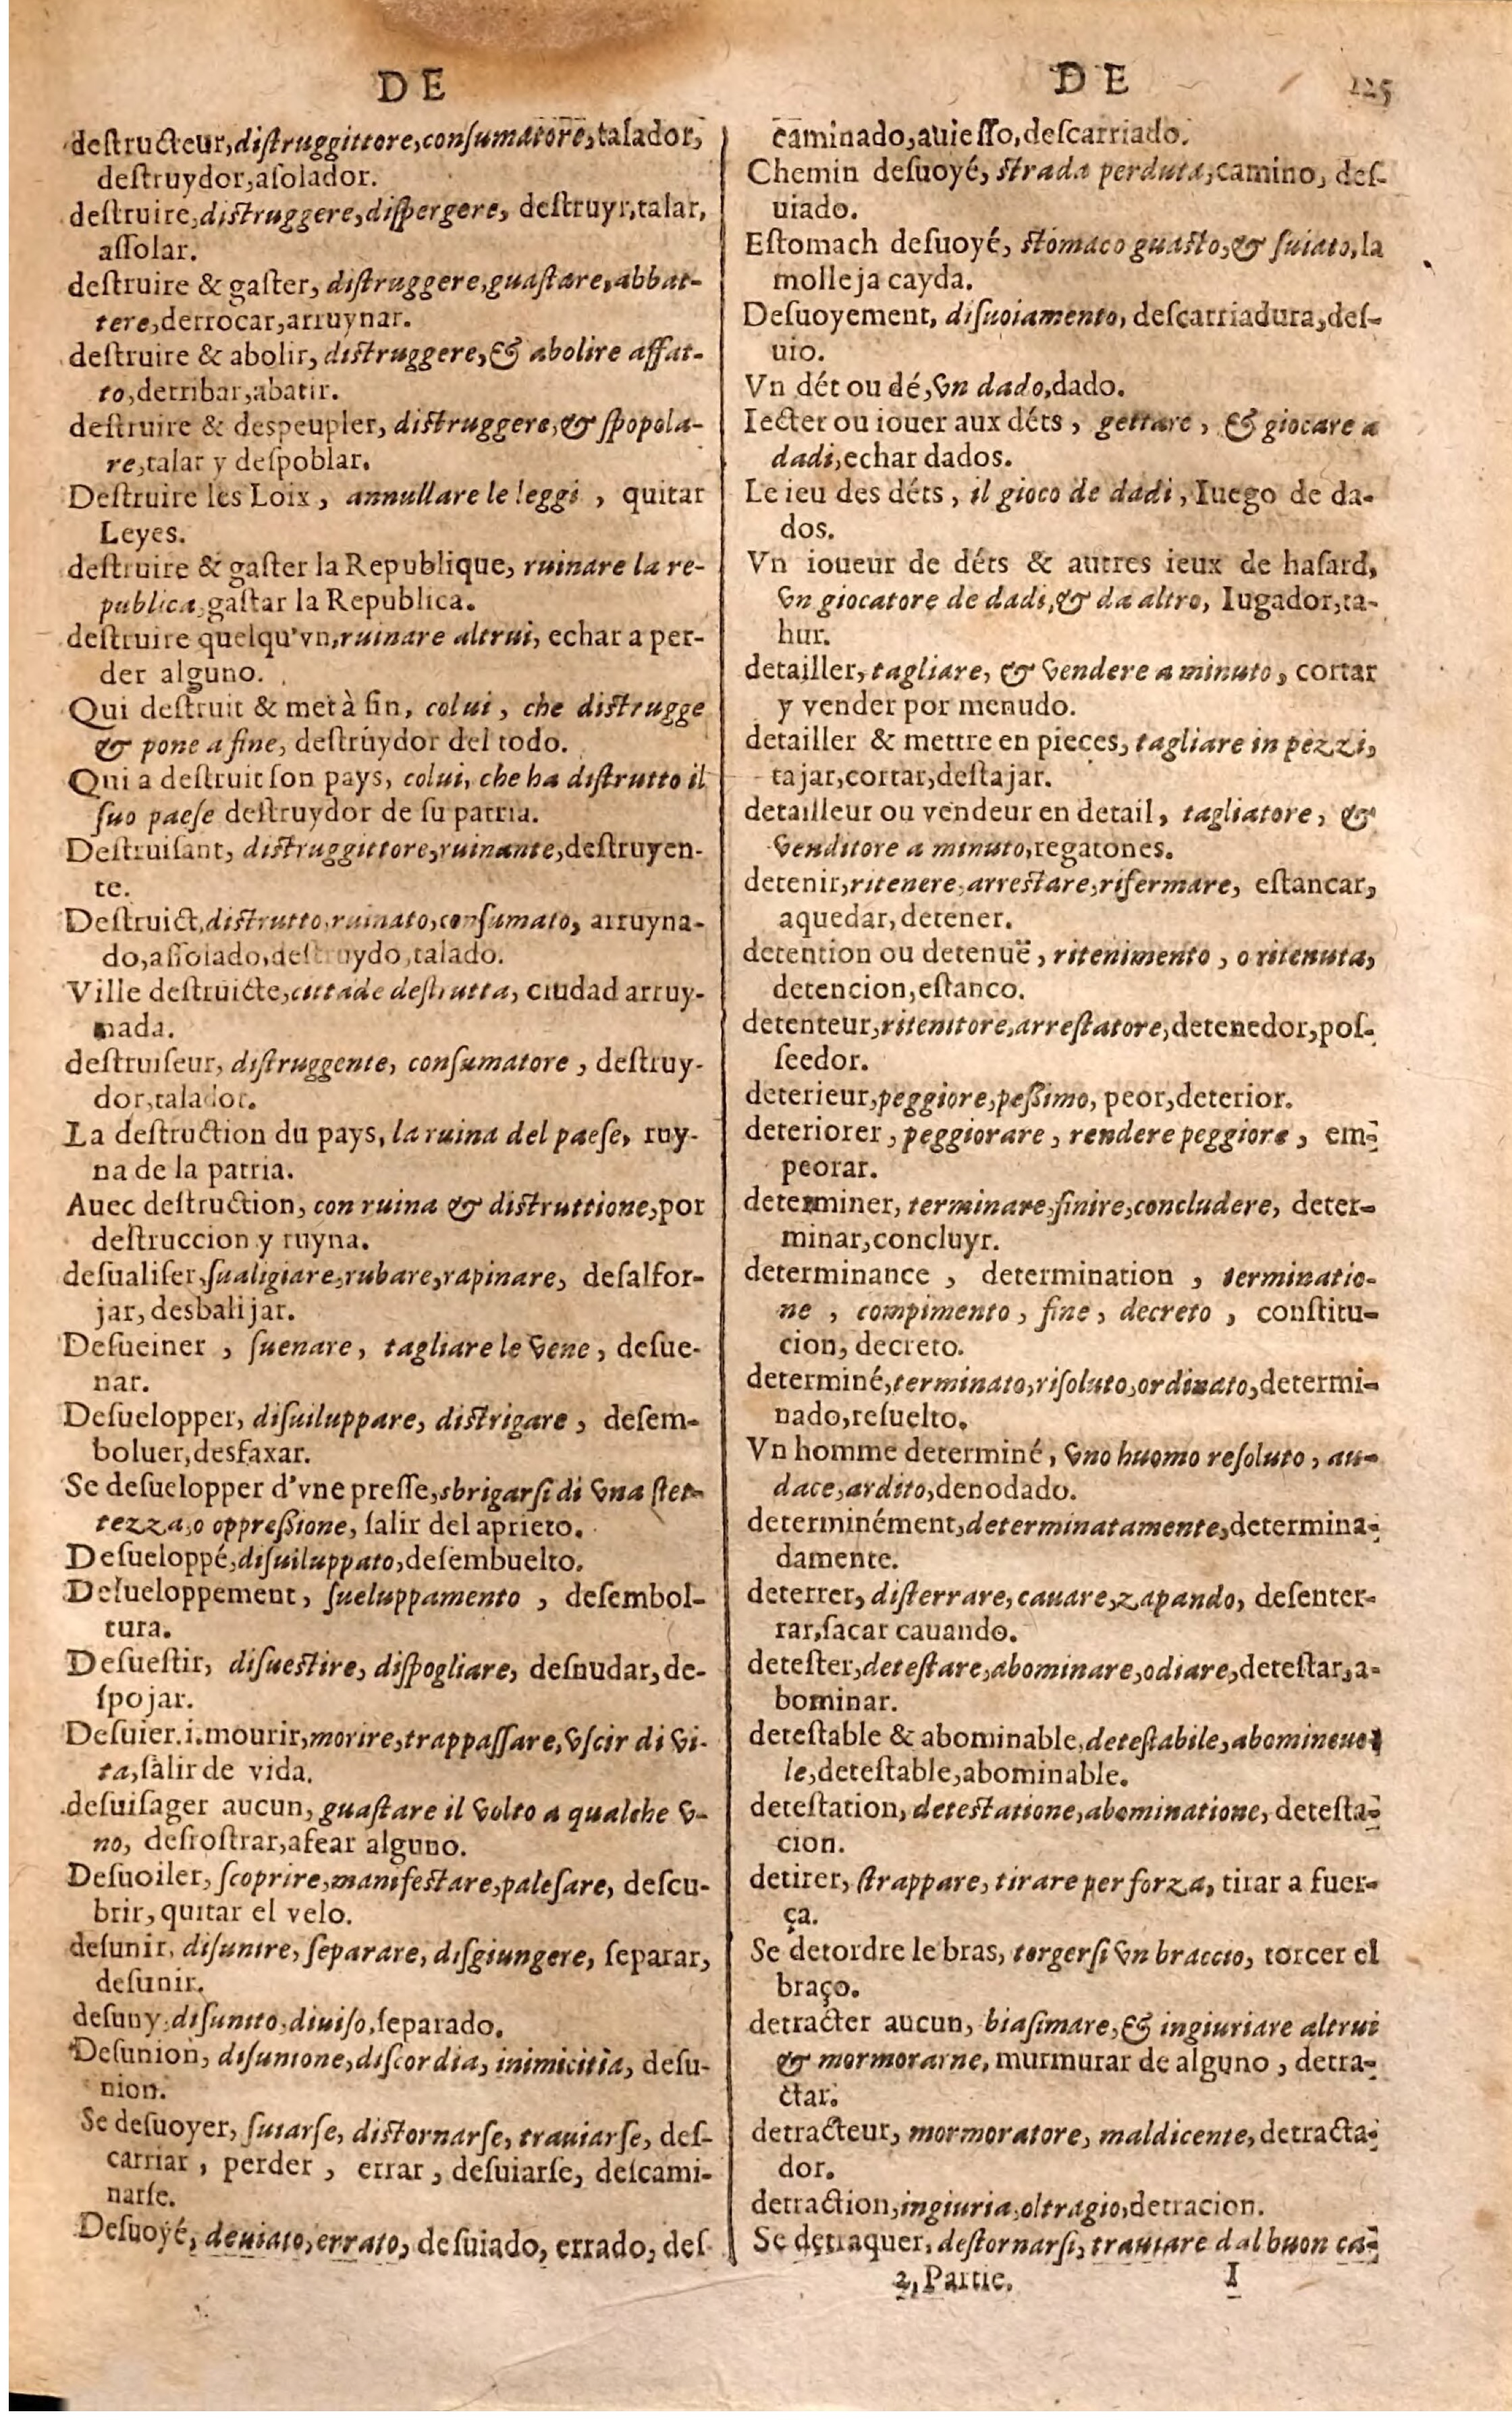 DE
destructeur, diſtruggittore, conſumatore, talador,
deſtruydor, aſolador.
deſtruire, diſtruggere, diſpergere, deſtruyr, talar,
aſſolar.
deſtruire & gaſter, diſtruggere, guaſtare, abbat-
tere, derrocar, arruynar.
deſtruire & abolir, diſtruggere, & abolire affat-
to, derribar, abatir.
deſtruire & despeupler, diſtruggere, & ſpopola-
re, talar y deſpoblar.
Deſtruire les Loix, annullare le leggi, quitar
Leyes.
deſtruire & gaſter la Republique, ruinare la re-
publica, gaſtar la Republica.
deſtruire quelqu'vn, ruinare altrui, echar a per-
der alguno.
Qui deſtruit & met à fin, colui, che diſtrugge
& pone a fine, deſtruydor del todo.
Qui a deſtruit ſon pays, colui, che ha diſtrutto il
ſuo paeſe deſtruydor de ſu patria.
Deſtruiſant, diſtruggittore, ruinante, deſtruyen-
te.
Deſtruict, diſtrutto, ruinato, conſumato, arruyna-
do, aſſolado, deſtruydo, talado.
Ville deſtruicte, cittade deſtrutta, ciudad arruy-
nada.
deſtruiſeur, diſtruggente, conſumatore, deſtruy-
dor, talador.
La deſtruction du pays, la ruina del paeſe, ruy-
na de la patria.
Auec deſtruction, con ruina & diſtruttione, por
deſtruccion y ruyna.
deſualiſer, ſualigiare, rubare, rapinare, deſalfor-
jar, desbalijar.
Deſueiner, ſuenare, tagliare le vene, deſue-
nar.
Deſuelopper, diſuiluppare, diſtrigare, deſem-
boluer, desfaxar.
Se deſuelopper d'vne preſſe, sbrigarſi di vna ſtet-
tezza, o oppreßione, ſalir del aprieto.
Deſueloppé, diſuiluppato, deſembuelto.
Deſueloppement, ſueluppamento, deſembol-
tura.
Deſueſtir, diſueſtire, diſpogliare, deſnudar, de-
ſpojar.
Deſuier. i. mourir, morire, trappaſſare, vſcir di vi-
ta, ſalir de vida.
deſuiſager aucun, guaſtare il volto a qualche v-
no, deſroſtrar, afear alguno.
Deſuoiler, ſcoprire, manifeſtare, paleſare, deſcu-
brir, quitar el velo.
deſunir, diſunire, ſeparare, diſgiungere, ſeparar,
deſunir.
deſuny, diſunito, diuiſo, ſeparado.
Deſunion, diſunione, diſcordia, inimicitia, deſu-
nion.
Se deſuoyer, ſuiarſe, diſtornarſe, trauiarſe, deſ-
carriar, perder, errar, deſuiarſe, deſcami-
narſe.
Deſuoyé, deuiato, errato, deſuiado, errado, deſ
DE 125
caminado, auieſſo, deſcarriado.
Chemin deſuoyé, ſtrada perduta, camino, deſ-
uiado.
Eſtomach deſuoyé, ſtomaco guaſto, & ſuiato, la
molleja cayda.
Deſuoyement, diſuoiamento, deſcarriadura, deſ-
uio.
Vn dét ou dé, vn dado, dado.
Iecter ou iouer aux déts, gettare, & giocare a
dadi, echar dados.
Le ieu des déts, il gioco de dadi, Iuego de da-
dos.
Vn ioueur de déts & autres ieux de haſard,
vn giocatore de dadi, & da altro, Iugador, ta-
hur.
detailler, tagliare, & vendere a minuto, cortar
y vender por menudo.
detailler & mettre en pieces, tagliare in pezzi,
tajar, cortar, deſtajar.
detailleur ou vendeur en detail, tagliatore, &
venditore a minuto, regatones.
detenir, ritenere, arreſtare, rifermare, eſtancar,
aquedar, detener.
detention ou detenuë, ritenimento, o ritenuta,
detencion, eſtanco.
detenteur, ritenitore, arreſtatore, detenedor, poſ-
ſeedor.
deterieur, peggiore, peßimo, peor, deterior.
deteriorer, peggiorare, rendere peggiore, em-
peorar.
determiner, terminare, finire, concludere, deter-
minar, concluyr.
determinance, determination, terminatio-
ne, compimento, fine, decreto, conſtitu-
cion, decreto.
determiné, terminato, riſoluto, ordinato, determi-
nado, reſuelto.
Vn homme determiné, vno huomo reſoluto, au-
dace, ardito, denodado.
determinément, determinatamente, determina-
damente.
deterrer, diſterrare, cauare, zapando, deſenter-
rar, ſacar cauando.
deteſter, deteſtare, abominare, odiare, deteſtar, a-
bominar.
deteſtable & abominable, deteſtabile, abomineuo
le, deteſtable, abominable.
deteſtation, deteſtatione, abominatione, deteſta-
cion.
detirer, ſtrappare, tirare per forza, tirar a fuer-
ça.
Se detordre le bras, torgerſi vn braccio, torcer el
braço.
detracter aucun, biaſimare, & ingiuriare altrui
& mormorarne, murmurar de alguno, detra-
ctar.
detracteur, mormoratore, maldicente, detracta-
dor.
detraction, ingiuria, oltragio, detracion.
Se detraquer, deſtornarſi, trauiare dal buon ca-
2, Partie. I